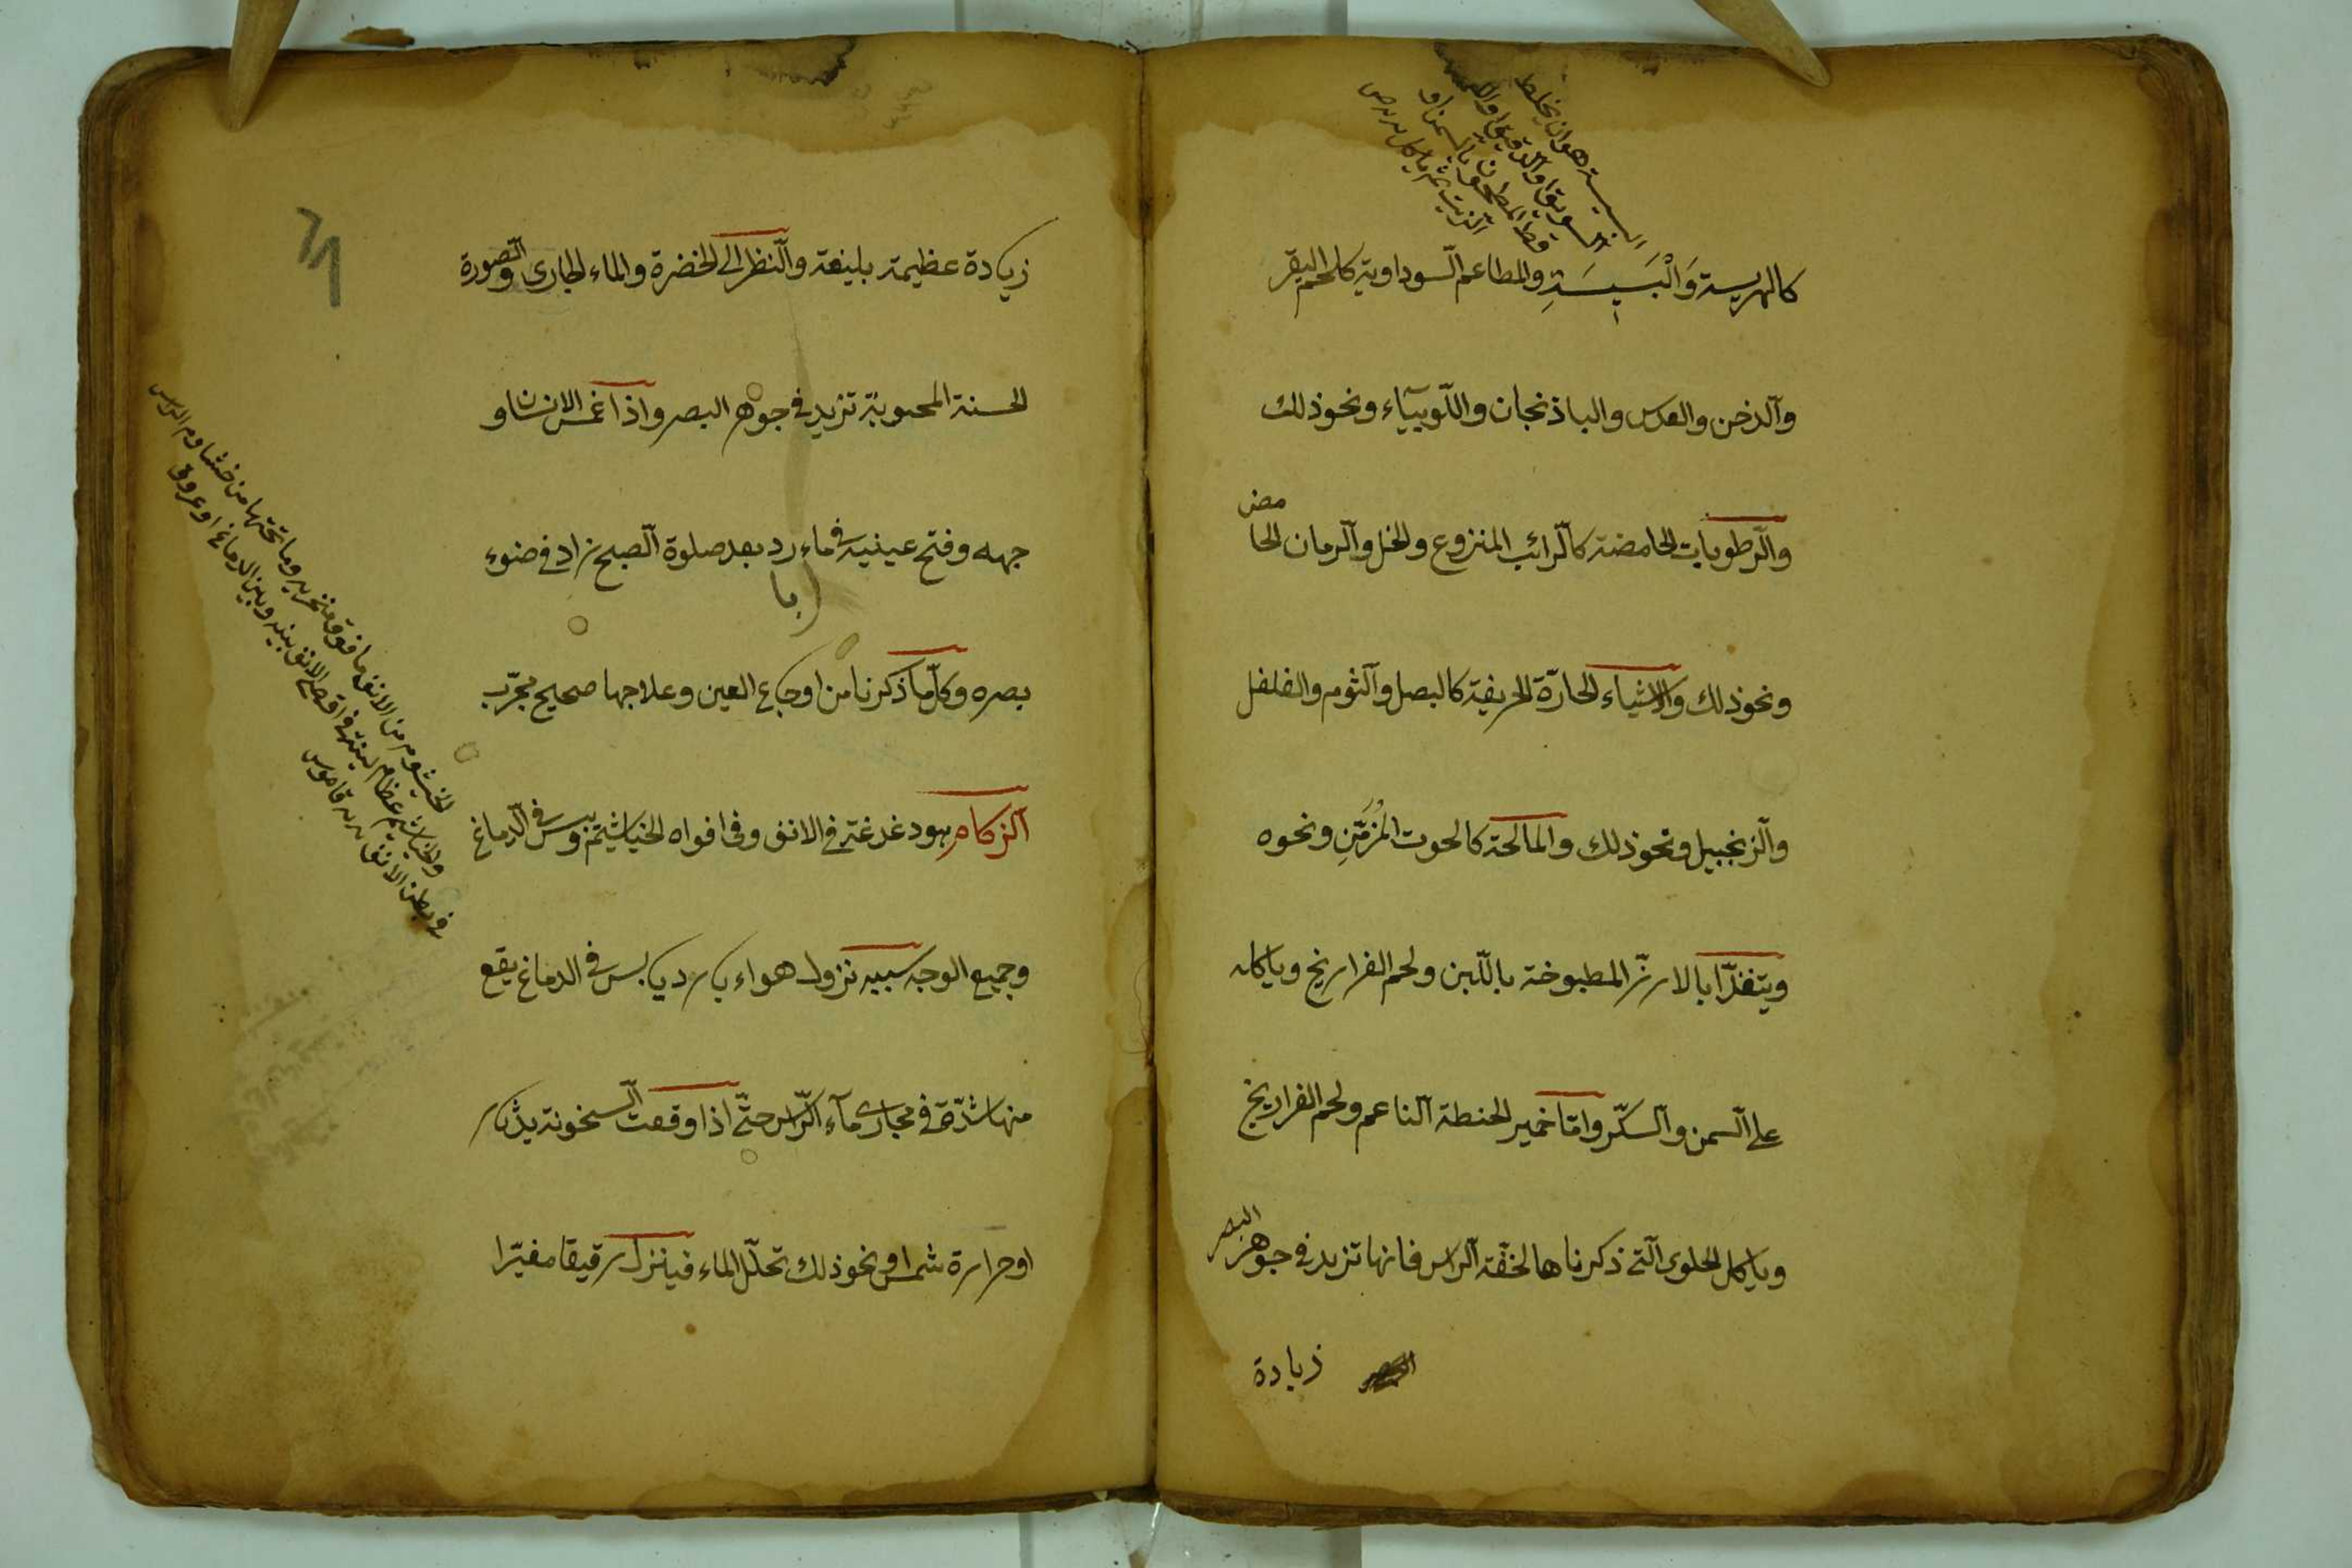 البسيسة هو ان يخلط
السويق او الدقيق او
قط المطحون بالسمن او
الزيت ثم ياكل
كالهريسة وَالْبَسِيسَةِ والمطاعم السوداوية كلحم البقر
وآلدخن والعدس والباذنجان واللّوبيآء ونحو ذلك
والرّطوبات الحامضة كالرّائب المنزوع والخل وآلرمان الحامض
ونحو ذلك والاشياء الحارّة الحريفة كالبصل وآلثوم والفلفل
وآلزنجبيل ونحو ذلك والمالحة كالحوت المُزَمَّنِ ونحوه
ويتغذّا بالارزّ المطبوخة باللّبن ولحم الفراريخ وياكله
على آلسمن وآلسكّر وامّا خمير الحنطة آلناعم ولحم الفراريخ
وياكل الحلوى آلّتى ذكرناها لخفّة آلراس فانها تزيد فى جوهر البصر
زيادة
زيادة عظيمة بليغة وآلنظر الى الخضرة والماء الجارى والصّورة
الحسنة المحبوبة تزيد فى جوهر البصر واذا غمس الانسان و
جهه وفتح عينيه فى ماء بارد بعد صلوة آلصبح زاد فى ضوء
بصره وكلّما ذكرنا من اوجاع العين وعلاجها صحيح مجرّب
آلزكام هو دغدغة فى الانف وفى افواه الخياشيم ويبس فى آلدماغ
وجميع الوجه سببه نزول هواء بارد يابس فى الدماغ يقع
منها شدّة فى مجارى مآء آلرّاس حتّى اذا وقعت آلسخونة بدثار
او حرارة شمس او نحو ذلك تحلّل الماء فينزل رقيقا مغيّرا
الخيشوم من الانف ما فوق نخرته وما تحتها من خشارم الراس
والخياشيم عظام لينة فى اقصى الانف بينه وبين الدماغ او عروق
فى بطن الانف قاموس